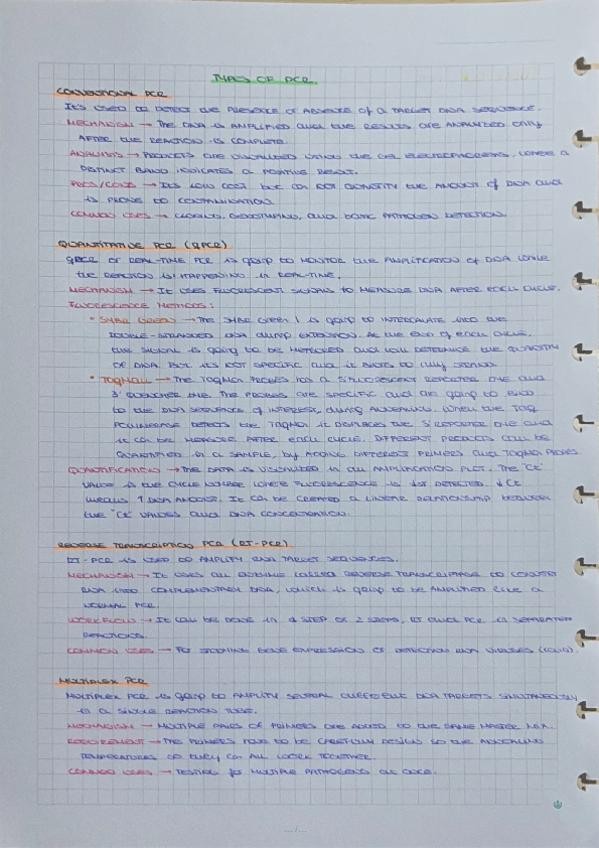 TYPES OF PCR
CONVENTIONAL PCR
IT'S USED TO DETECT THE PRESENCE OR ABSENCE OF A TARGET DNA SEQUENCE.
MECHANISM → THE DNA IS AMPLIFIED AND THE RESULTS ARE ANALYZED ONLY
AFTER THE REACTION IS COMPLETE.
ANALYSIS → PRODUCTS ARE VISUALIZED USING THE GEL ELECTROPHORESIS, WHERE A
DISTINCT BAND INDICATES A POSITIVE RESULT.
PROS/CONS → ITS LOW COST BUT CAN NOT QUANTIFY THE AMOUNT OF DNA AND
IS PRONE TO CONTAMINATION.
COMMON USES → CLONING, GENOTYPING, AND BASIC PATHOGEN DETECTION.
QUANTITATIVE PCR (QPCR)
QPCR OR REAL-TIME PCR IS GOING TO MONITOR THE AMPLIFICATION OF DNA WHILE
THE REACTION IS HAPPENING IN REAL-TIME.
MECHANISM → IT USES FLUORESCENT SIGNALS TO MEASURE DNA AFTER EACH CYCLE.
FLUORESCENCE METHODS:
• SYBR GREEN → THE SYBR GREEN I IS GOING TO INTERCALATE INTO THE
DOUBLE-STRANDED DNA DURING EXTENSION. AT THE END OF EACH CYCLE,
THIS SIGNAL IS GOING TO BE MEASURED AND WILL DETERMINE THE QUANTITY
OF DNA. BUT ITS NOT SPECIFIC AND IT BINDS TO ANY
• TAQMAN → THE TAQMAN PROBES HAS A 5' FLUORESCENT REPORTER DYE AND
3' QUENCHER DYE. THE PROBES ARE SPECIFIC AND ARE GOING TO BIND
TO THE DNA SEQUENCE OF INTEREST, DURING ANNEALING. WHEN THE TAQ
POLYMERASE DETECTS THE TAQMAN IT DISPLACES THE 5' REPORTER DYE AND
IT CAN BE MEASURE AFTER EACH CYCLE. DIFFERENT PRODUCTS CAN BE
QUANTIFIED IN A SAMPLE, BY ADDING DIFFERENT PRIMERS AND TAQMAN PROBES.
QUANTIFICATION → THE DATA IS VISUALIZED IN AN AMPLIFICATION PLOT. THE "Ct"
VALUE IS THE CYCLE NUMBER WHERE FLUORESCENCE IS 1st DETECTED. ↓ Ct
MEANS ↑ DNA AMOUNT. IT CAN BE CREATED A LINEAR RELATIONSHIP BETWEEN
THE "Ct" VALUES AND DNA CONCENTRATION.
REVERSE TRANSCRIPTION PCR (RT-PCR)
RT-PCR IS USED TO AMPLIFY RNA TARGET SEQUENCES.
MECHANISM → IT USES AN ENZYME CALLED REVERSE TRANSCRIPTASE TO CONVERT
RNA INTO COMPLEMENTARY DNA, WHICH IS GOING TO BE AMPLIFIED LIKE A
NORMAL PCR.
WORKFLOW → IT CAN BE DONE IN 1 STEP OR 2 STEPS, RT AND PCR IN SEPARATED
REACTIONS.
COMMON USES → FOR STUDYING GENE EXPRESSION OR DETECTION RNA VIRUSES (COVID).
MULTIPLEX PCR
MULTIPLEX PCR IS GOING TO AMPLIFY SEVERAL DIFFERENT DNA TARGETS SIMULTANEOUSLY
IN A SINGLE REACTION TUBE.
MECHANISM → MULTIPLE PAIRS OF PRIMERS ARE ADDED TO THE SAME MASTER MIX.
REQUIREMENT → THE PRIMERS HAVE TO BE CAREFULLY DESIGN SO THE ANNEALING
TEMPERATURES OF THEY CAN ALL WORK TOGETHER.
COMMON USES → TESTING FOR MULTIPLE PATHOGENS AT ONCE.
.../...